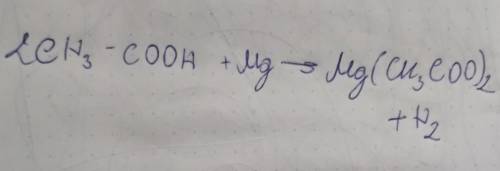 2CH₃-COOH + Mg → Mg(CH₃COO)₂
+ H₂